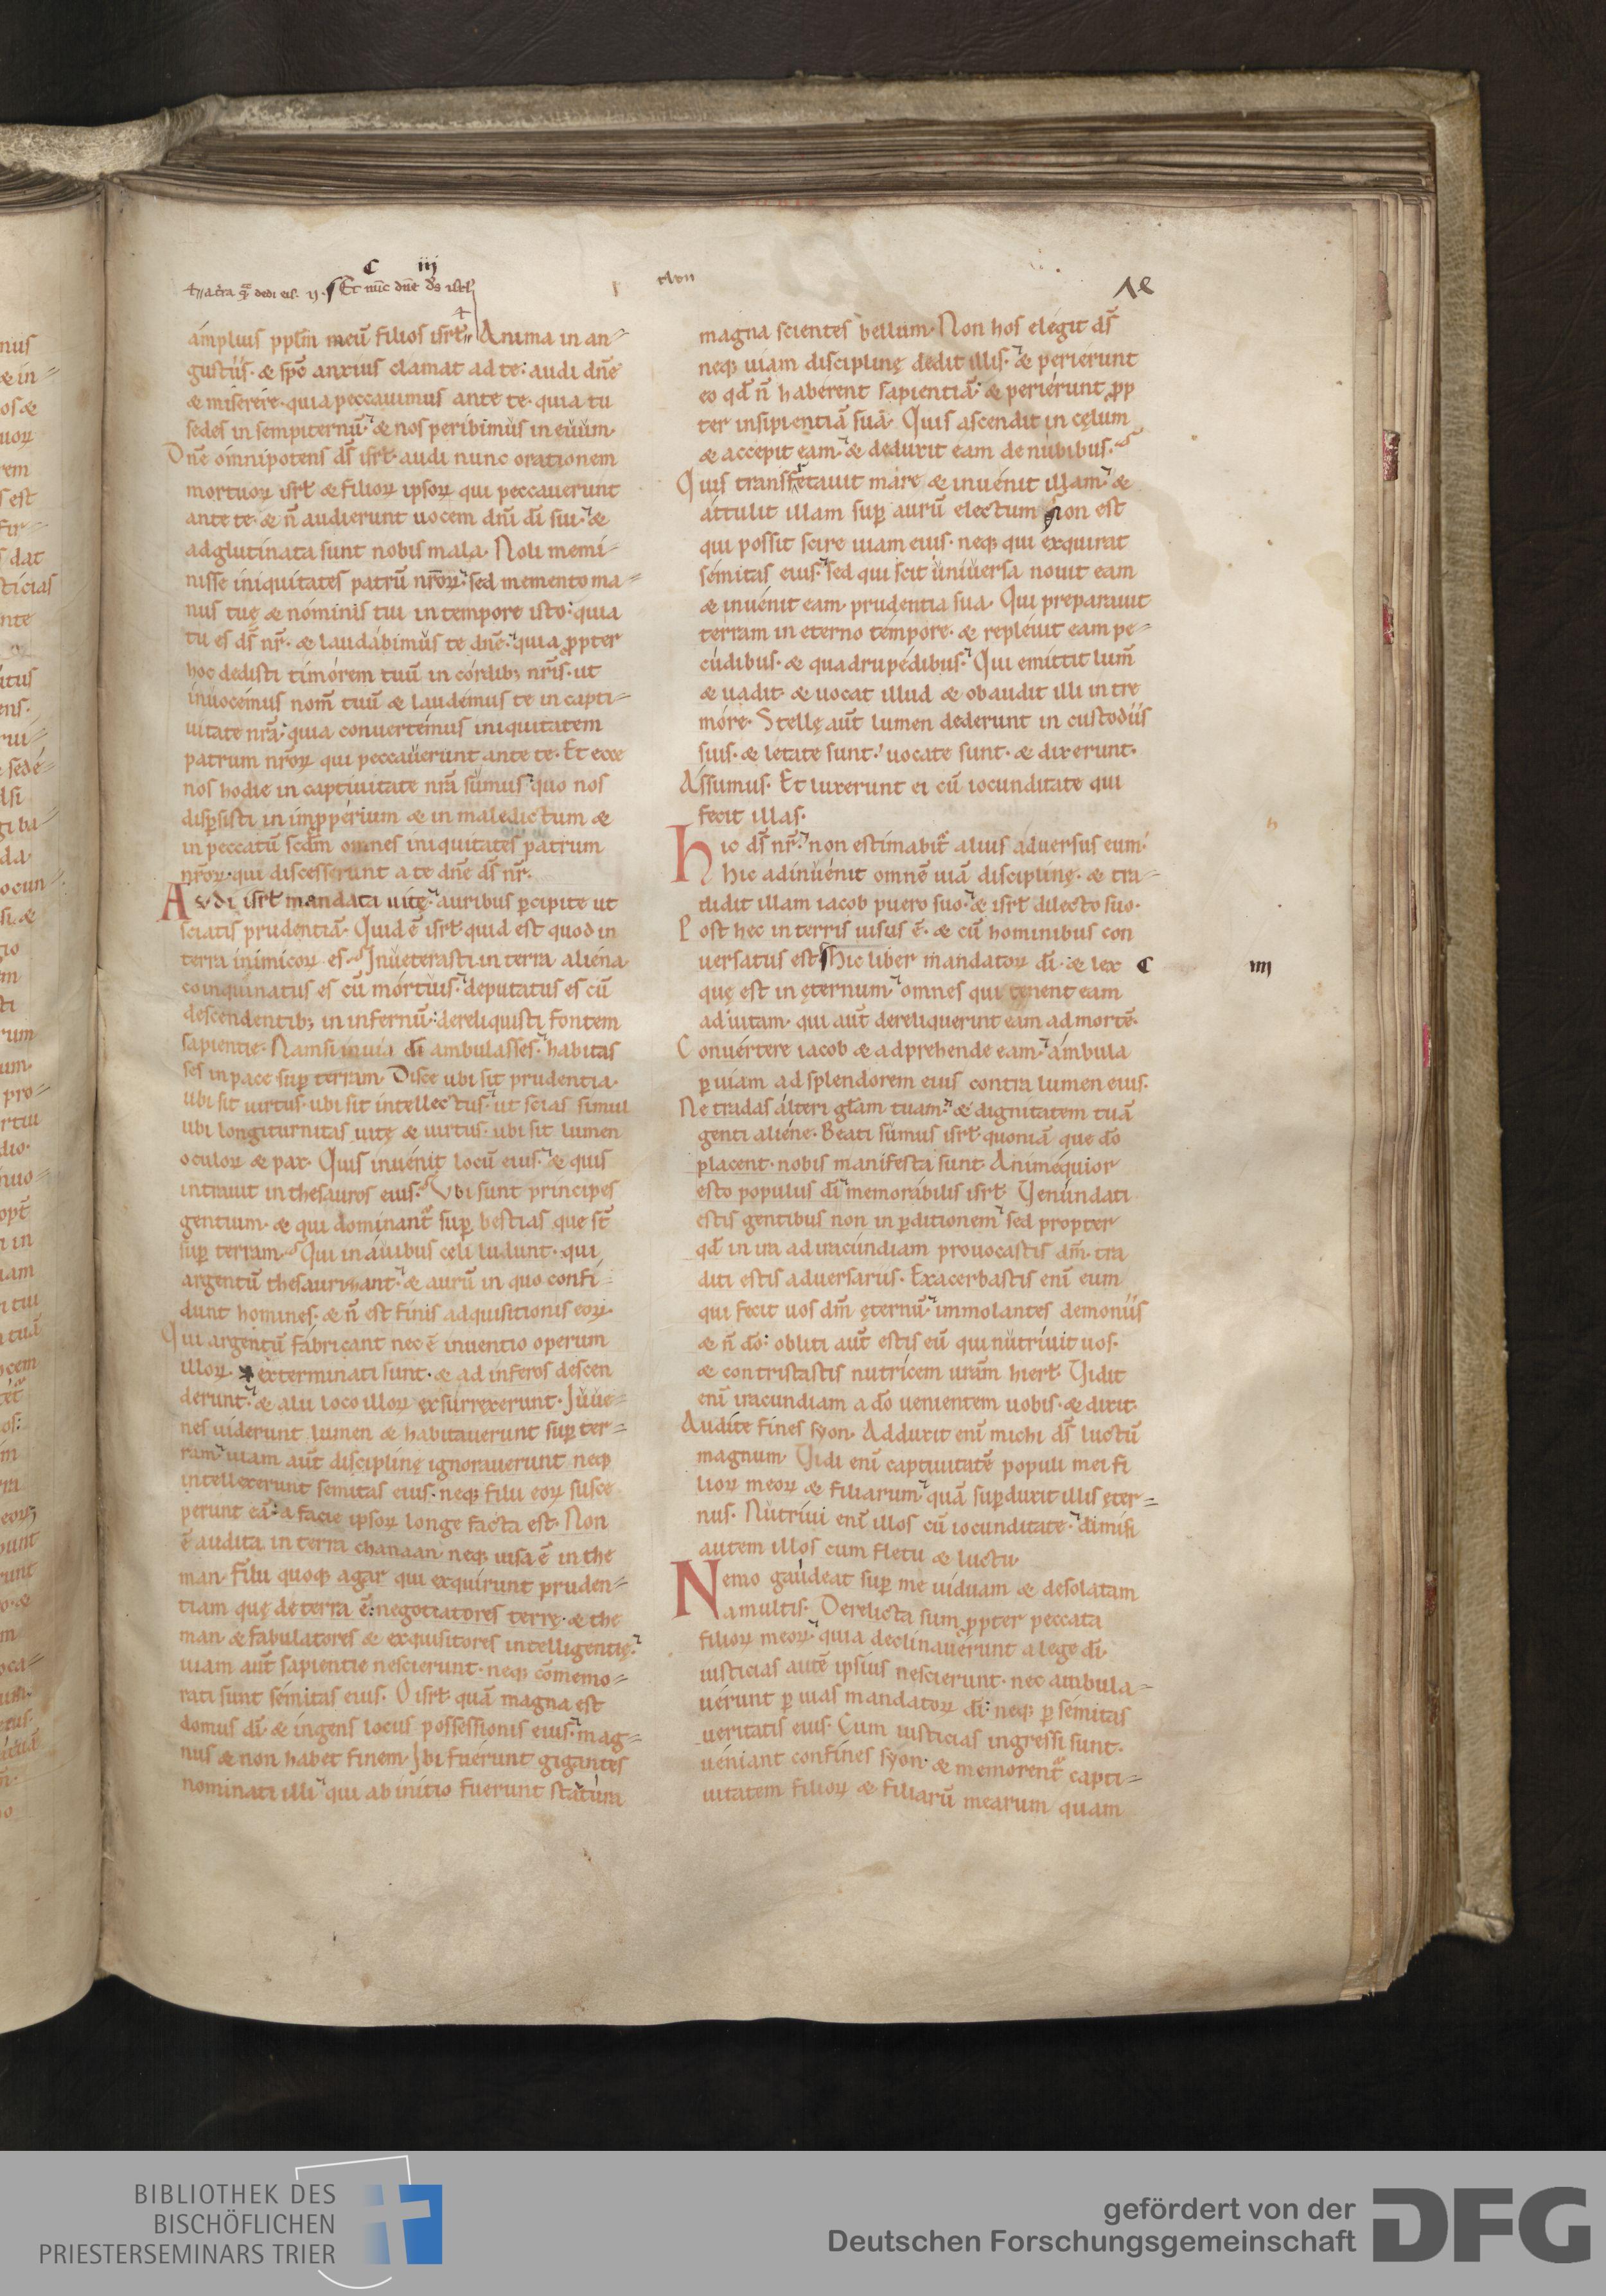 C iij
a terra qua dedi eis. Et nūc dn̄e ds̄ isrl̄
ampluis ppl̄m meū filios isrl̄. Anima in an-
gustiis. & sp̄c anxius clamat ad te: audi dn̄e
& miserere. quia peccauimus ante te. quia tu
sedes in sempiternū. & nos peribimus in euum.
Dn̄e omnipotens ds̄ isrl̄. audi nunc orationem
mortuoꝝ isrl̄ & filioꝝ ipsoꝝ qui peccauerunt
ante te. & n̄ audierunt uocem dn̄i dī sui. &
adglutinata sunt nobis mala. Noli memi-
nisse iniquitates patrū nr̄oꝝ. sed memento ma-
nus tuę & nominis tui in tempore isto: quia
tu es ds̄ nr̄. & laudabimus te dn̄e. quia ꝓpter
hoc dedisti timorem tuū in cordibꝫ nr̄is. ut
inuocemus nom̄ tuū & laudemus te in capti-
uitate nr̄a. quia conuertemus iniquitatem
patrum nr̄oꝝ qui peccauerunt ante te. Et ecce
nos hodie in captiuitate nr̄a sumus. quo nos
disp̱sisti in inꝓperium & in maledictum &
in peccatū scd̄m omnes iniquitates patrum
nr̄oꝝ. qui discesserunt a te dn̄e ds̄ nr̄.
Audi isrl̄ mandata uitę. auribus ꝑcipite ut
sciatis prudentiā. Quid ē isrl̄ quid est quod in
terra inimicoꝝ es. Inueterasti in terra aliena
coinquinatus es cū mortuis. deputatus es cū
descendentibꝫ in infernū: dereliquisti fontem
sapientie. Nam si in uia dī ambulasses. habitas
ses in pace suꝑ terram. Disce ubi sit prudentia.
ubi sit uirtus. ubi sit intellectus. ut scias simul
ubi longiturnitas uitę & uirtus. ubi sit lumen
oculoꝝ & pax. Quis inuenit locū eius. & quis
intrauit in thesauros eius. Vbi sunt principes
gentium. & qui dominant̄ suꝑ bestias que st̄
suꝑ terram. Qui in auibus celi ludunt. qui
argentū thesaurizant. & aurū in quo confi-
dunt homines. & n̄ est finis adquisitionis eoꝝ.
Qui argentū fabricant nec ē inuentio operum
illoꝝ. exterminati sunt. & ad inferos descen
derunt. & alii loco illoꝝ exsurrexerunt. Iuue-
nes uiderunt lumen & habitauerunt suꝑ ter-
ram. uiam aut̄ disciplinę ignorauerunt neqꝫ
intellexerunt semitas eius. neqꝫ filii eoꝝ susce
perunt eā. a facie ipsoꝝ longe facta est. Non
ē audita in terra chanaan neqꝫ uisa ē in the
man. Filii quoqꝫ agar qui exquirunt pruden-
tiam quę de terra ē: negotiatores terrę. & the
man & fabulatores & exquisitores intelligentię.
uiam aut̄ sapientie nescierunt. neqꝫ cōmemo-
rati sunt semitas eius. O isrl̄ quā magna est
domus dī. & ingens locus possessionis eius. mag-
nus & non habet finem. Ibi fuerunt gigantes
nominati illi. qui ab initio fuerunt statura
magna scientes bellum. Non hos elegit ds̄
neqꝫ uiam disciplinę dedit illis. & perierunt
eo qd̄ n̄ haberent sapientiā. & perierunt ꝓp
ter insipientiā suā. Quis ascendit in cęlum
& accepit eam. & deduxit eam de nubibus.
Quis transfretauit mare & inuenit illam. &
attulit illam suꝑ aurū electum. Non est
qui possit scire uiam eius. neqꝫ qui exquirat
semitas eius. sed qui scit uniuersa nouit eam
& inuenit eam prudentia sua. Qui preparauit
terram in eterno tempore. & repleuit eam pe-
cudibus. & quadrupedibus. Qui emittit lum̄
& uadit. & uocat illud & obaudit illi in tre
more. Stellę aut̄ lumen dederunt in custodiis
suis. & letate sunt. uocate sunt. & dixerunt.
Assumus. Et luxerunt ei cū iocunditate qui
fecit illas.
Hic ds̄ nr̄. non estimabit̄ alius aduersus eum.
hic adinuenit omnē uiā disciplinę. & tra-
didit illam iacob puero suo. & isrl̄ dilecto suo.
Post hec in terris uisus ē. & cū hominibus con
uersatus est. Hic liber mandatoꝝ dī. & lex C iiii
quę est in ęternum. omnes qui tenent eam
ad uitam. qui aut̄ dereliquerint eam ad mortē.
Conuertere iacob & adprehende eam. ambula
ꝑ uiam ad splendorem eius contra lumen eius.
Ne tradas alteri gl̄am tuam. & dignitatem tuā
genti aliene. Beati sumus isrl̄. quoniā que dō
placent. nobis manifesta sunt. Animequior
esto populus dī memorabilis isrl̄. Venundati
estis gentibus non in ꝑditionem. sed propter
qd̄ in ira ad iracundiam prouocastis dm̄. tra
diti estis aduersariis. Exacerbastis enī eum
qui fecit uos dm̄ ęternū. immolantes demoniis
& n̄ dō: obliti aut̄ estis eū qui nutriuit uos.
& contristastis nutricem uram̄ hierl̄. Vidit
enī iracundiam a dō uenientem uobis. & dixit.
Audite fines syon. Adduxit enī michi ds̄ luctū
magnum. Vidi enī captiuitatē populi mei fi
lioꝝ meoꝝ & filiarum. quā suꝑduxit illis ęter-
nus. Nutriui enī illos cū iocunditate. dimisi
autem illos cum fletu & luctu.
Nemo gaudeat suꝑ me uiduam & desolatam
a multis. Derelicta sum ꝓpter peccata
filioꝝ meoꝝ. quia declinauerunt a lege dī.
iusticias autē ipsius nescierunt. nec ambula-
uerunt ꝑ uias mandatoꝝ dī: neqꝫ ꝑ semitas
ueritatis eius. Cum iusticias ingressi sunt.
ueniant confines syon. & memorent̄ capti-
uitatem filioꝝ & filiarū mearum quam
BIBLIOTHEK DES
BISCHÖFLICHEN
PRIESTERSEMINARS TRIER
gefördert von der
Deutschen Forschungsgemeinschaft
DFG